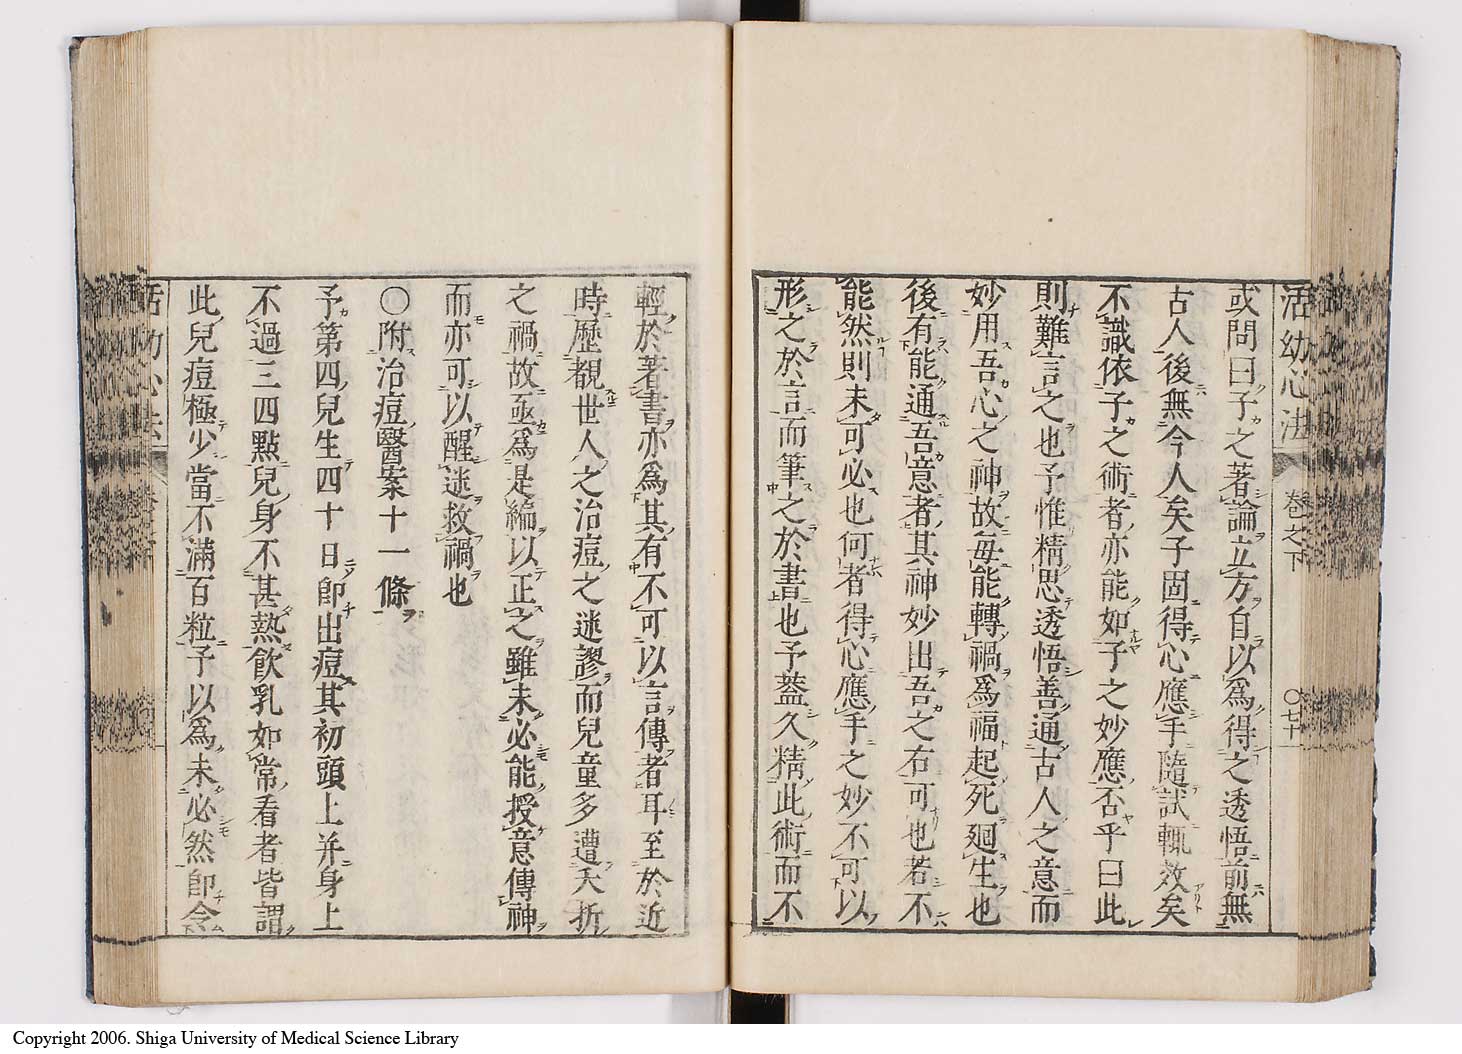 活幼心法 卷之下 ○七十
或問曰子之著論立方自以爲得之透悟前無
古人後無今人矣子固得心應手隨試輒效矣
不識依子之術者亦能如子之妙應否乎曰此
則難言之也予惟精思透悟善通古人之意而
妙用吾心之神故每能轉禍爲福起死廻生也
後有能通吾意者其神妙出吾之右可也若不
能然則未可必也何者得心應手之妙不可以
形之於言而筆之於書也予蓋久精此術而不
輕於著書亦爲其有不可以言傳者耳至於近
時歷覩世人之治痘之迷謬而兒童多遭夭折
之禍故亟爲是編以正之雖未必能授意傳神
而亦可以醒迷救禍也
○附治痘醫案十一條
予第四兒生四十日卽出痘其初頭上并身上
不過三四點兒身不甚熱飲乳如常看者皆謂
此兒痘極少當不滿百粒予以爲未必然卽令
活幼心法
Copyright 2006. Shiga University of Medical Science Library